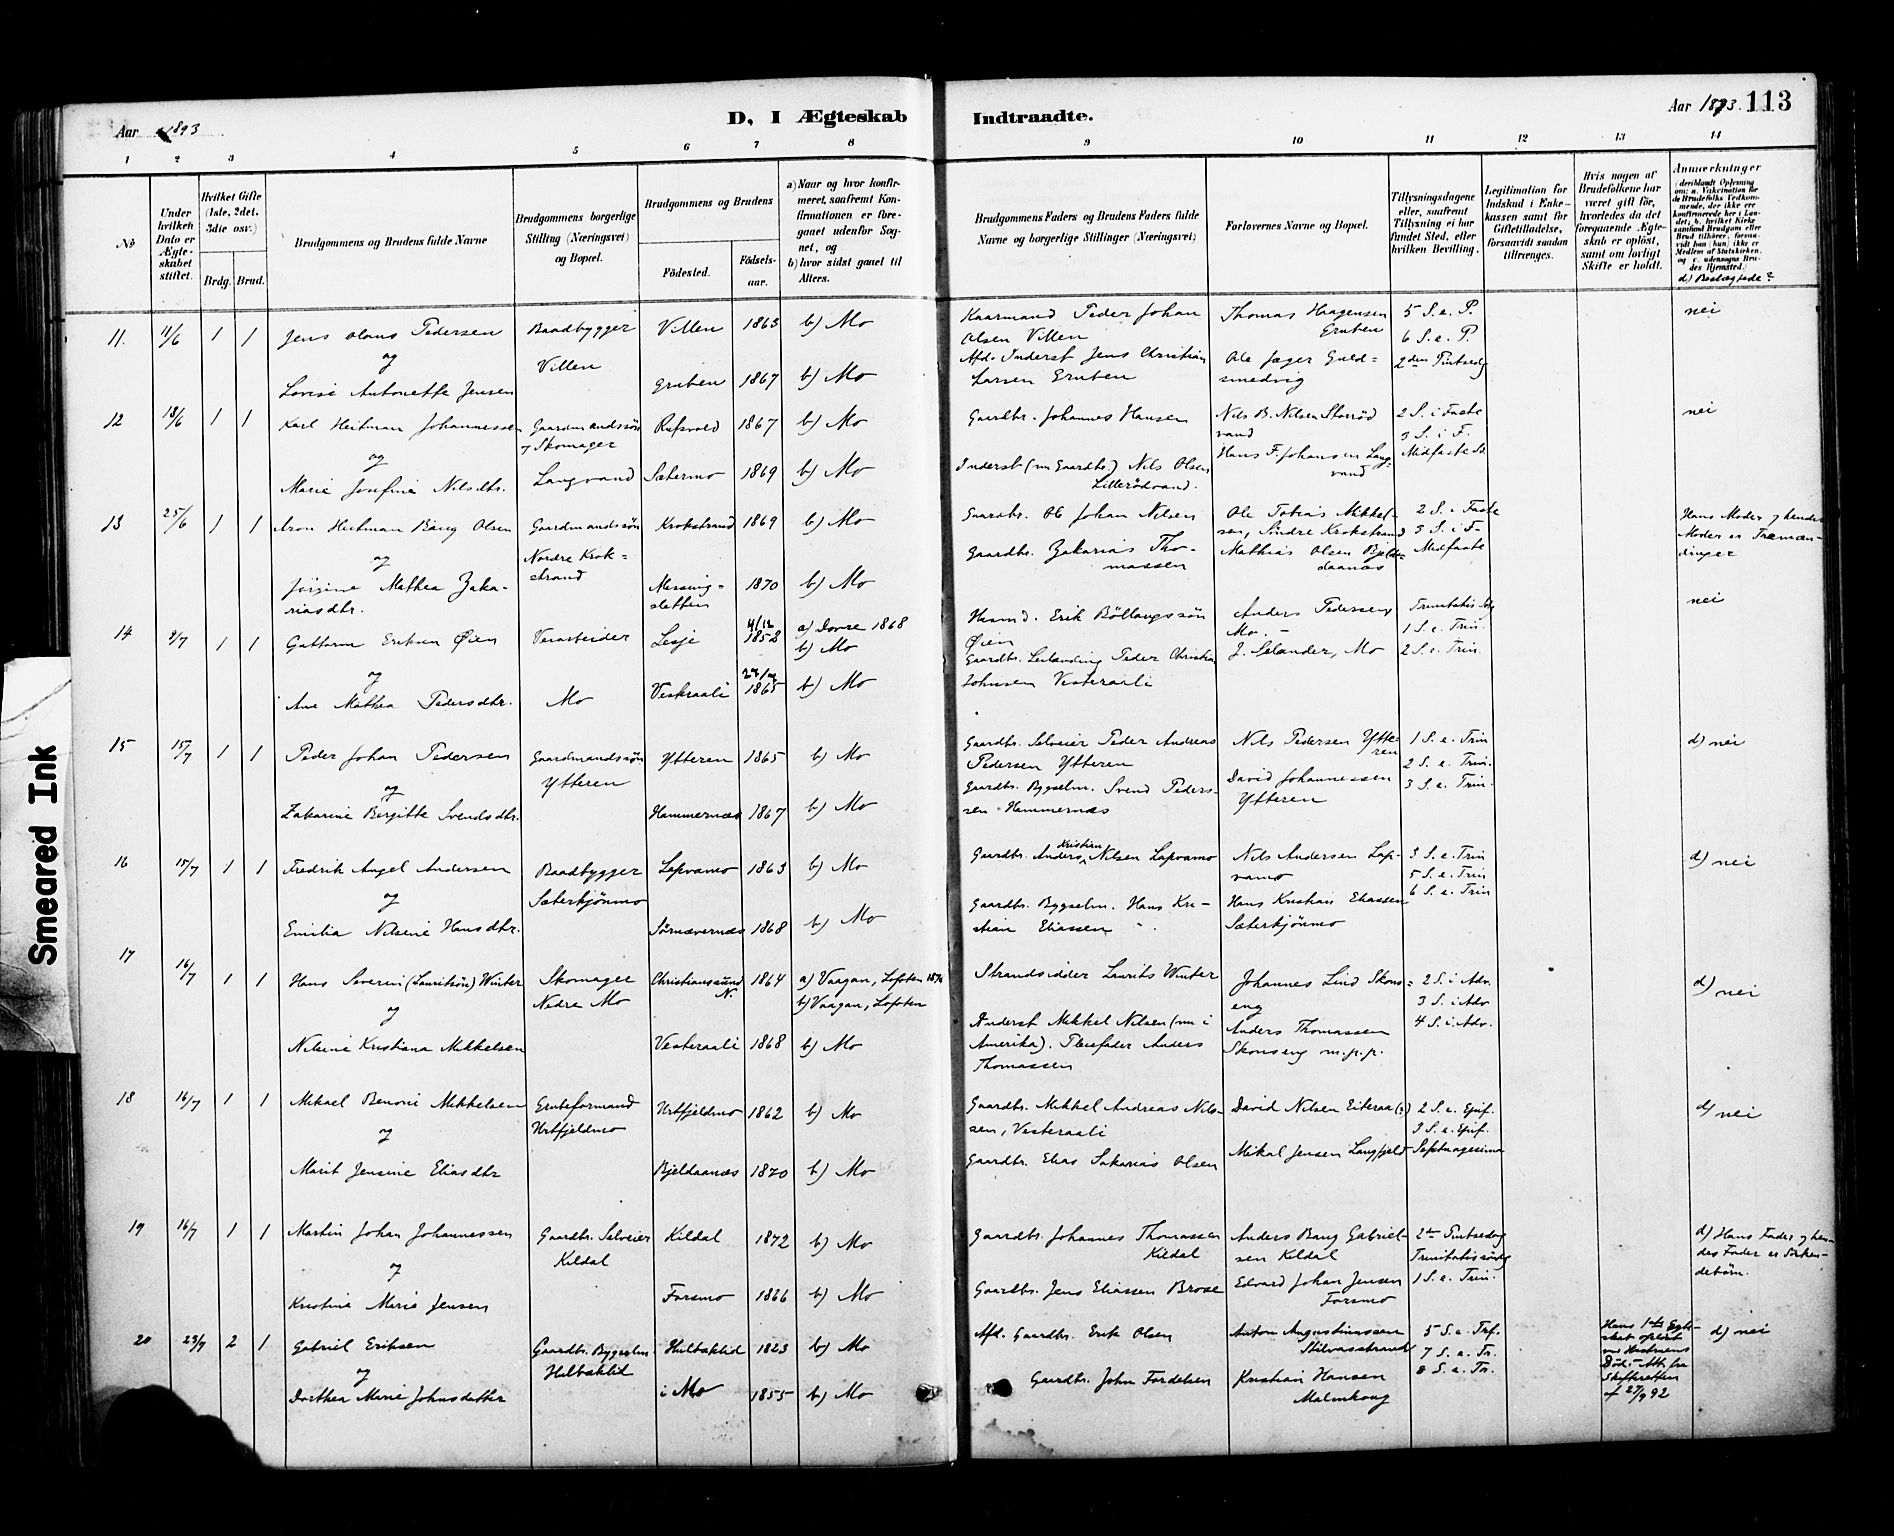 Aar 1893
D, I Ægteskab Indtraadte.
Aar 1893. 113
1 2 3 4 5 6 7 8 9 10 11 12 13 14
No
Under hvilken Dato er Ægteskabet stiftet.
Hvilket Gifte (1ste, 2det, 3die osv.)
Brdg. Brud.
Brudgommens og Brudens fulde Navne
Brudgommens borgerlige Stilling (Næringsvei) og Bopæl.
Brudgommens og Brudens
Fødested.
Fødselsaar.
a) Naar og hvor konfirmeret, saafremt Konfirmationen er foregaaet udenfor Sognet, og
b) hvor sidst gaaet til Alters.
Brudgommens Faders og Brudens Faders fulde Navne og borgerlige Stillinger (Næringsvei)
Forlovernes Navne og Bopæl.
Tillysningsdagene eller, saafremt Tillysning ei har fundet Sted, efter hvilken Bevilling.
Legitimation for Indskud i Enkekassen samt for Giftetilladelse, forsaavidt saadan tiltrænges.
Hvis nogen af Brudefolkene har været gift før, hvorledes da det foregaaende Ægteskab er opløst, samt om lovligt Skifte er holdt.
Anmærkninger
d) Beslægtede?
11. 11/6 1 1 Jens Olaus Pedersen Baadbygger Villen 1863 b) Mo
Kaarmand Peder Johan Olsen Villen
Thomas Haagensen Gruben
5 S. e. P.
6 S. e. P.
2den Pintsedg
nei
og
Villen
Lovise Antonette Jensen Gruben 1867 b) Mo
Afd. Inderst Jens Christian Larsen Gruben
Ole Jæger Guldsmedvig
12 18/6 1 1 Karl Heitman Johannessen Gaardmandssøn og Skomager Rufsvold 1867 b) Mo
Gaardbr. Johannes Hansen
Nils B. Nilsen Storrødvand
2 S. i Faste
3 S. i F.
Midfaste S.
nei
og
Langvand
Marie Josefine Nilsdtr. Sætermo 1869 b) Mo
Inderst (nu Gaardbr.) Nils Olsen Lillerødvand.
Hans F. Johansen Langvand
13 25/6 1 1 Aron Heitman Bang Olsen Gaardmandssøn Krokstrand 1869 b) Mo
Gaardbr. Ole Johan Nilsen
Ole Tobias Mikkelsen, Søndre Krokstrand
2 S. i Faste
3 S. i F.
Midfaste
Hans Moder og hendes Moder er Tremændinger
og
Nordre Krokstrand
Jørgine Mathea Zakariasdtr. Messingsletten 1870 b) Mo
Gaardbr. Zakarias Thomassen
Mathias Olsen Bjeldaanæs
14 2/7 1 1 Guttorm Eriksen Øien Veiarbeider Lesje 4/12 1852 a) Dovre 1868
b) Mo
Husmd. Erik Bøllangssøn Øien
Anders Pedersen, Mo.
Trinitatis Sdg
1 S. e. Trin.
2 S. e. Trin.
nei
og
Ane Mathea Pedersdtr. Mo Vesteraali 1865 b) Mo
Gaardbr. Leilænding Peder Christian Johnsen Vesteraali
J. Selander, Mo
15 15/7 1 1 Peder Johan Pedersen Gaardmandssøn Ytteren Ytteren 1865 b) Mo
Gaardbr. Selveier Peder Andreas Pedersen Ytteren
Nils Pedersen Ytteren
1 S. e. Trin
2 S. e. Trin.
3 S. e. Trin.
d) nei
og
Zakarine Bergitte Svendsdtr. Hammernæs 1867 b) Mo
Gaardbr. Bygselm. Svend Pederssen Hammernæs
David Johannessen Ytteren
16 15/7 1 1 Fredrik Angel Andersen Baadbygger Lapvamo 1863 b) Mo
Gaardbr. Anders Kristian Nilsen Lapvamo
Nils Andersen Lapvamo
3 S. e. Trin
5 S. e. Trin
6 S. e. Trin
d) nei
og
Sæterkjønmo
Emilia Nilsine Hansdtr. Sørnævernæs 1868 b) Mo
Gaardbr. Bygselm. Hans Kristian Eliassen
Hans Kristian Eliassen Sæterkjønmo
17 16/7 1 1 Hans Severin (Lauritsøn) Winter Skomager Nedre Mo Christianssund N. 1864 a) Vaagan, Lofoten
b) Vaagan, Lofoten
Strandsidder Laurits Winter
Johannes Lind Skonseng
2 S. i Adv.
3 S. i Adv
4 S. i. Adv.
d) nei
og
Nilsine Kristiana Mikkelsen Vesteraali 1868 b) Mo
Inderst Mikkel Nilsen (nu i Amerika). Pleiefader Anders Thomassen
Anders Thomassen Skonseng m.p.p.
18 16/7 1 1 Mikael Benoni Mikkelsen Grubeformand Urtfjeldmo Urtfjeldmo 1862 b) Mo
Gaardbr. Mikkel Andreas Nilssen, Vesteraali
David Nilsen Eiteraa (?)
2 S. e. Epif.
3 S. e. Epif.
Septuagesima
d) nei
og
Marit Jensine Eliasdtr Bjeldaanæs 1870 b) Mo
Gaardbr. Elias Sakarias Olsen
Mikal Jensen Langfjeld
19 16/7 1 1 Martin Johan Johannessen Gaardbr. Selveier Kildal Kildal 1872 b) Mo
Gaardbr. Johannes Thomassen Kildal
Anders Bang Gabrielsen Kildal
2den Pintsedag
Trinitatissøndg
1 S. e. Trin.
d) Hans Fader og hendes Fader er Sødskendebørn.
og
Kristine Marie Jensen Forsmo 1866 b) Mo
Gaardbr. Jens Eliassen Brose
Edvard Johan Jensen Forsmo
20 23/7 2 1 Gabriel Eriksen Gaardbr. Bygselm. Hulbæklid Hulbæklid 1823 b) Mo
Afd. Gaardbr. Erik Olsen
Anton Augustinussen Stilvasstrand
5 S. e. Tr.
7 S. e. Tr.
8 S. e. Tr.
Hans 1ste Egteskab opløst ved Hustruens Død. Att. fra Skifteretten af 27/9 92
d) nei
og
Dorthea Marie Johnsdatter i Mo 1855 b) Mo
Gaardbr. John Fordelsen
Kristian Hansen Malmhaug
Smeared Ink